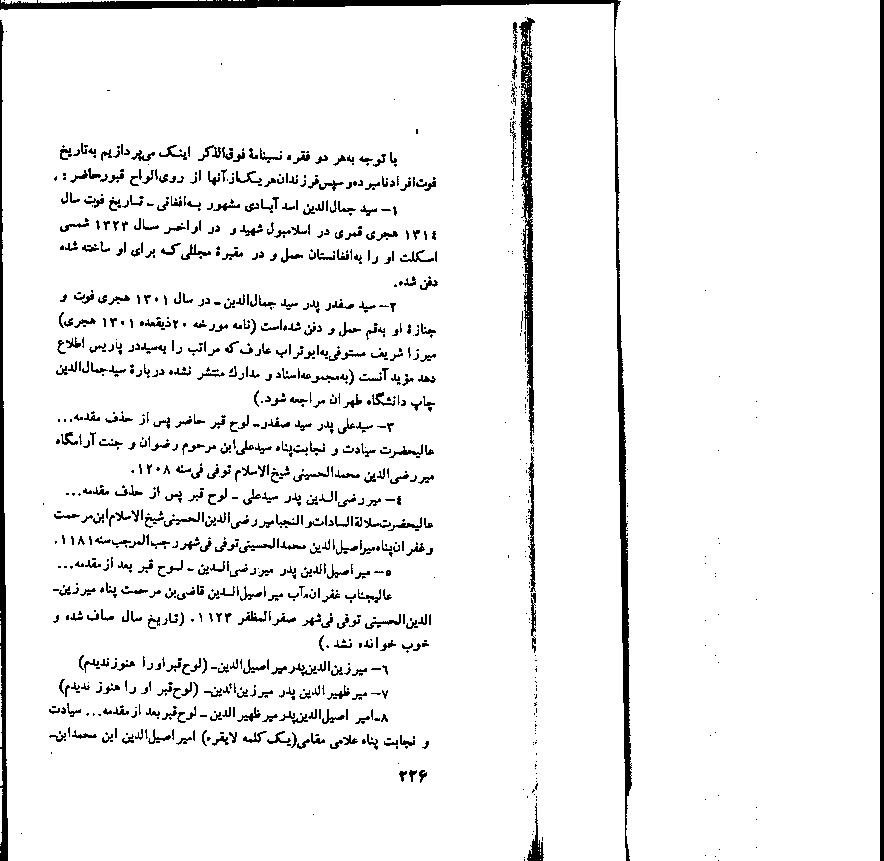 با توجه به‌هر دو فقره نسبنامهٔ فوق‌الذکر اینک می‌پردازیم به‌تاریخ
فوت‌افراد‌نامبرده‌و‌سپس‌فرزندان‌هریک‌از‌آنها از روی‌الواح قبور‌حاضر :
۱ – سید جمال‌الدین اسد آبادی مشهور به‌افغانی – تاریخ فوت سال
۱۳۱٤ هجری قمری در اسلامبول شهید و در اواخر سال ۱۳۲۳ شمسی
اسکلت او را به‌افغانستان حمل و در مقبرهٔ مجللی که برای او ساخته شده
دفن شده.
۲ – سید صفدر پدر سید جمال‌الدین – در سال ۱۳۰۱ هجری فوت و
جنازهٔ او به‌قم حمل و دفن شده‌است (نامه مورخه ۲۰ذیقعده ۱۳۰۱ هجری)
میرزا شریف مستوفی‌به‌ابوتراب عارف که مراتب را به‌سیددر پاریس اطلاع
دهد مؤید آنست (به‌مجموعه‌اسناد و مدارك منتشر نشده دربارهٔ سیدجمال‌الدین
چاپ دانشگاه طهران مراجعه شود.)
۳ – سیدعلی پدر سید صفدر– لوح قبر حاضر پس از حذف مقدمه...
عالیحضرت سیادت و نجابت‌پناه سیدعلی‌ابن مرحوم رضوان و جنت آرامگاه
میر رضی‌الدین محمدالحسینی شیخ‌الاسلام توفی فی‌سنه ۱۲۰۸.
٤ – میر رضی‌الدین پدر سیدعلی – لوح قبر پس از حذف مقدمه...
عالیحضرت‌سلالةالسادات‌و‌النجبا‌میر رضی‌الدین‌الحسینی‌شیخ‌الاسلام‌ابن‌مرحمت
و غفران‌پناه‌میراصیل‌الدین محمدالحسینی‌توفی فی‌شهر رجب‌المرجب‌سنه۱۱۸۱.
۵ – میر اصیل‌الدین پدر میر رضی‌الدین – لوح قبر بعد از مقدمه...
عالیجناب غفران‌مآب میر اصیل‌الدین قاضی‌بن مرحمت پناه میر زین–
الدین‌الحسینی توفی فی‌شهر صفرالمظفر ۱۱۲۳. (تاریخ سال صاف شده و
خوب خوانده نشد.)
٦ – میر زین‌الدین‌پدر میر اصیل‌الدین– (لوح‌قبر‌او‌را هنوز ندیدم)
۷ – میر ظهیرالدین پدر میر زین‌الدین– (لوح‌قبر او را هنوز ندیدم)
۸– امیر اصیل‌الدین‌پدر میر ظهیر الدین – لوح‌قبر‌بعد از مقدمه... سیادت
و نجابت پناه علامی مقامی(یک کلمه لایقره) امیر اصیل‌الدین ابن محمدابن–
۲۲۶